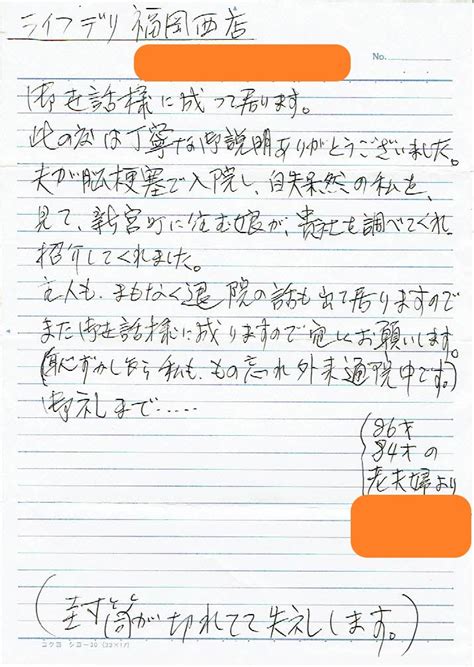 ライフデリ福岡西店
No.
御世話様に成って居ります。
此の度は丁寧な御説明ありがとうございました。
夫が脳梗塞で入院し、自失呆然の私を、
見て、新宮町に住む娘が、貴社を調べてくれ
紹介してくれました。
主人も、まもなく退院の話も出て居りますので
また御世話様に成りますので宜しくお願いします。
(恥ずかしながら私も、もの忘れ外来通院中です。)
御礼まで……
86才
84才の
老夫婦より
(封筒が切れてて失礼します。)
コクヨ シヨ-20